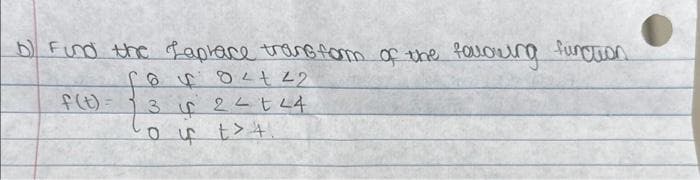 b) Find the Laplace transform of the following function
f(t) = { 0 if 0 < t < 2
3 if 2 < t < 4
0 if t > 4.